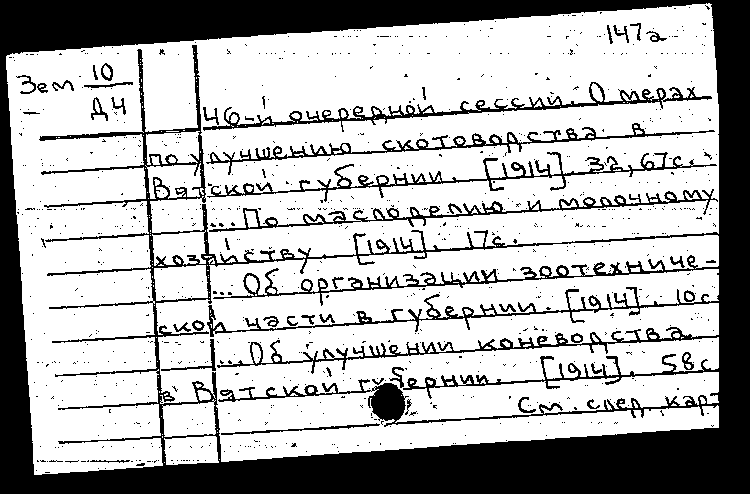 147а
Зем 10
Д4
46-й очередной сессии. О мерах
по улучшению скотоводства в
Вятской губернии. [1914]. 32, 67с.
... По маслоделию и молочному
хозяйству. [1914]. 17с.
... Об организации зоотехниче-
ской части в губернии. [1914]. 10с.
... Об улучшении коневодства
в Вятской губернии. [1914]. 58с.
См. след. карт